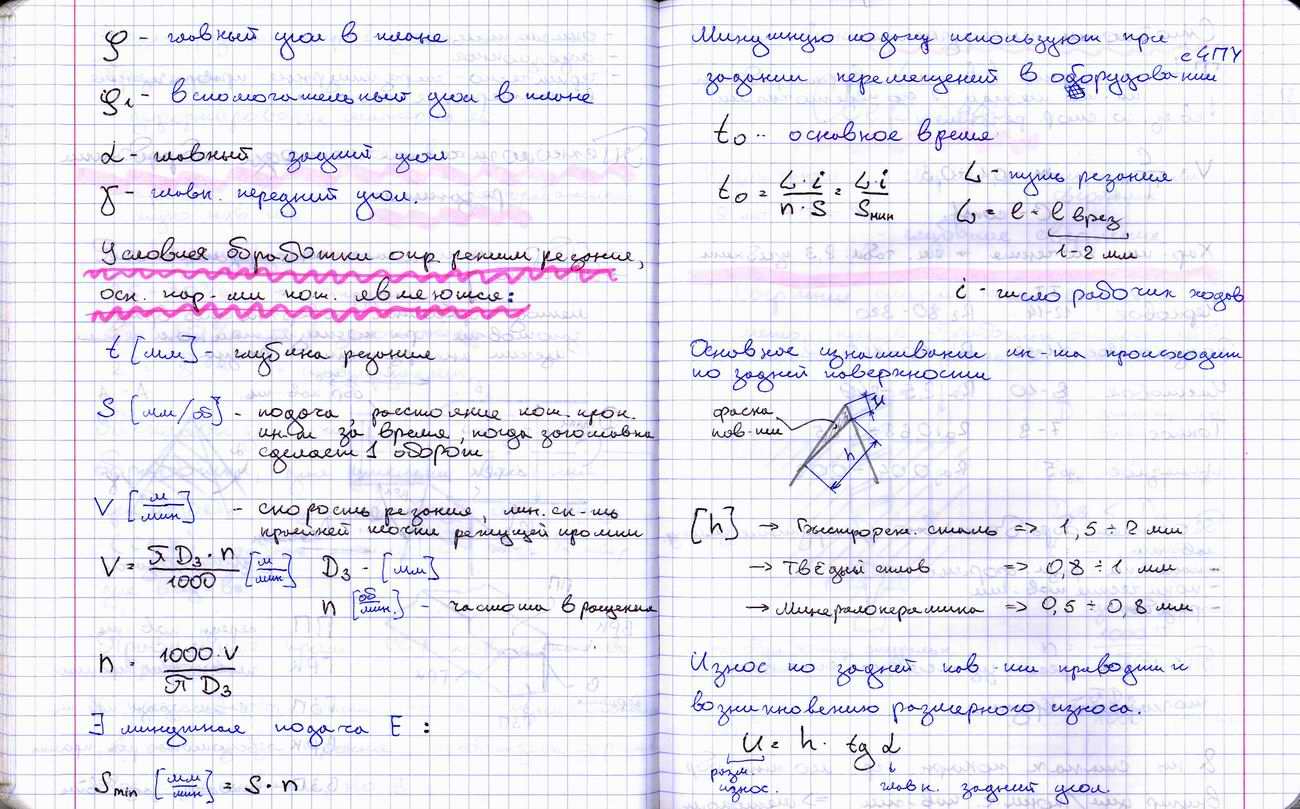 φ - главный угол в плане
φ₁ - вспомогательный угол в плане
α - главный задний угол
γ - главн. передний угол.
Условия обработки опр. режим резания,
осн. пар-ми кот. являются:
t [мм] - глубина резания
S [мм/об] - подача, расстояние кот. прох.
ин-т за время, когда заготовка
сделает 1 оборот
V [м/мин] - скорость резания, лин. ск-ть
крайней точки режущей кромки
V = π D₃ · n / 1000 [м/мин] D₃ - [мм]
n [об/мин.] - частота вращения
n = 1000 · V / π D₃
∃ минутная подача Е :
Smin [мм/мин] = S · n
Минутную подачу используют при
задании перемещений в оборудовании
с ЧПУ
t₀ - основное время
t₀ = L · i / n · S = L · i / Sмин
L - путь резания
L = l + l врез
1-2 мм
i - число рабочих ходов
Основное изнашивание ин-та происходит
по задней поверхности
фаска
пов-ти
u
h
[h] → Быстрореж. сталь => 1,5 ÷ 2 мм
→ Твёрдый сплав => 0,8 ÷ 1 мм
→ Минералокерамика => 0,5 ÷ 0,8 мм
Износ по задней пов-ти приводит к
возникновению размерного износа.
U = h · tg α
разм.
износ.
главн. задний угол.